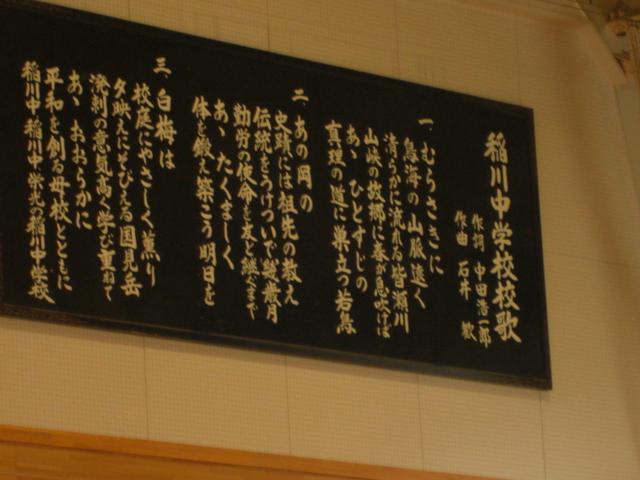 稲川中学校校歌
作詞 中田浩一郎
作曲 石井 歓
一 むらさきに
鳥海の山脈遠く
清らかに流れる皆瀬川
山峡の故郷に春が息吹けば
あゝ ひとすじの
真理の道に巣立つ若鳥
二 あの岡の
史蹟には祖先の教え
伝統をうけついで幾歳月
勤労の使命を友と継ぐまで
あゝ たくましく
体を鍛え築こう明日を
三 白梅は
校庭にやさしく薫り
夕映えにそびえる国見岳
溌剌の意気高く学び重ねて
あゝ おおらかに
平和を創る母校とともに
稲川中 稲川中 栄光の稲川中学校